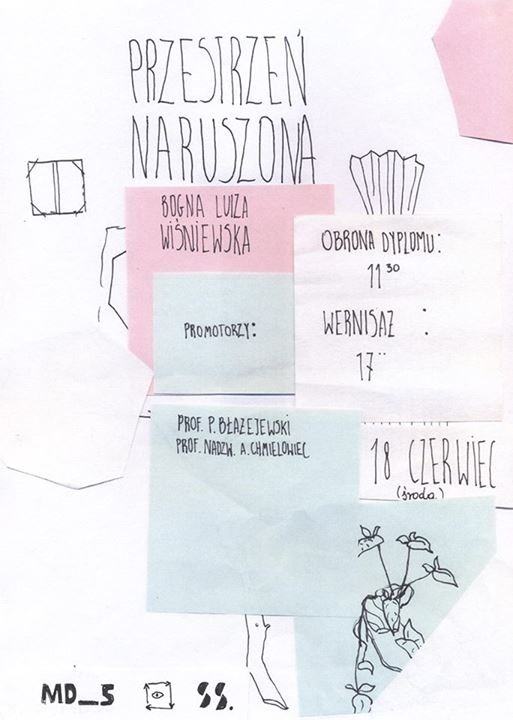 PRZESTRZEŃ
NARUSZONA
BOGNA LUIZA
WIŚNIEWSKA
OBRONA DYPLOMU:
11³⁰
PROMOTORZY:
WERNISAŻ :
17⁰⁰
PROF. P. BŁAŻEJEWSKI
PROF. NADZW. A. CHMIELOWIEC
18 CZERWIEC
(środa.)
MD_5
SS.